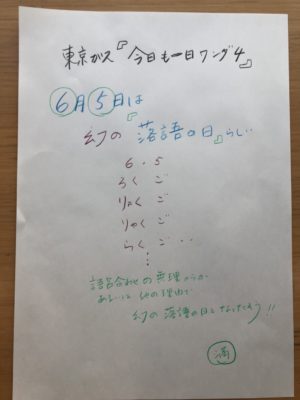 東京ガス『今日も一日ワング4』
6月5日は
幻の『落語の日』らしい
6・5
ろくご
りゃくご
りゃくご
らくご・・
⋮
語呂合わせの無理からか
あるいは他の理由で
幻の落語の日となったそう!!